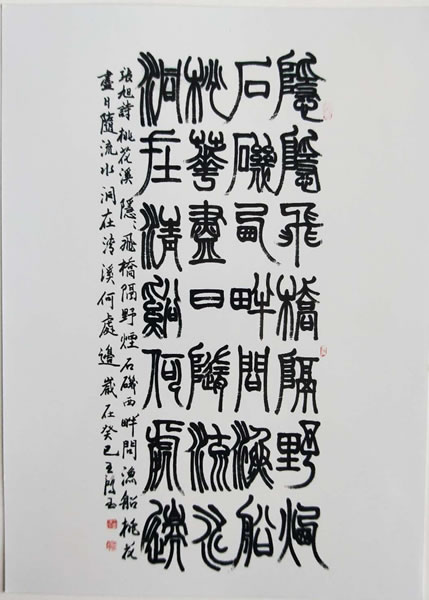 隱隱飛橋隔野煙
石磯西畔問漁船
桃華盡日隨流水
洞在清谿何處邊
張旭詩桃花溪隱〻飛橋隔野煙石磯西畔問漁船桃花
盡日隨流水洞在清溪何處邊歲在癸巳王